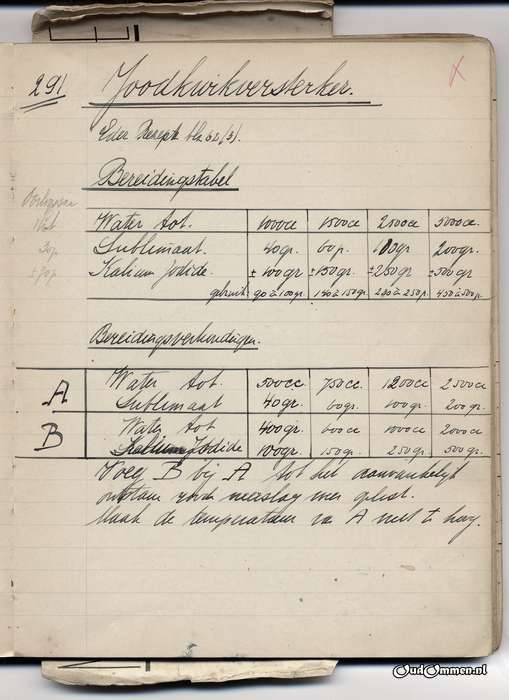 291 Joodkwikversterker.
Eder Recepte blz 62 (3).
Bereidingstabel
Water tot. 1000cc 1500cc 2500cc 5000cc
Sublimaat. 40gr. 60gr. 100gr 200gr.
Kalium Jodide. ± 100gr ± 150gr. ± 250gr. ± 500gr
gebruik: 90 à 100gr. 140 à 150gr. 230 à 250gr. 450 à 500gr.
Bereidingsverhoudingen.
A Water tot. 500cc 750cc 1200cc 2500cc
Sublimaat 40gr. 60gr. 100gr. 200gr.
B Water tot 400gr. 600cc 1000cc 2000cc
Kalium Jodide 100gr 150gr. 250gr. 500gr.
Voeg B bij A tot het aanvankelijk
ontstane roode neerslag weer oplost.
Maak de temperatuur van A niet te hoog.
OudOmmen.nl